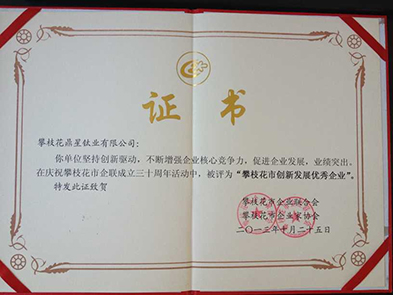 证书
攀枝花鼎星钛业有限公司:
你单位坚持创新驱动，不断增强企业核心竞争力，促进企业发展，业绩突出。
在庆祝攀枝花市企联成立三十周年活动中，被评为“攀枝花市创新发展优秀企业”。
特发此证致贺
攀枝花市企业联合会
攀枝花市企业家协会
二〇一三年十月二十五日